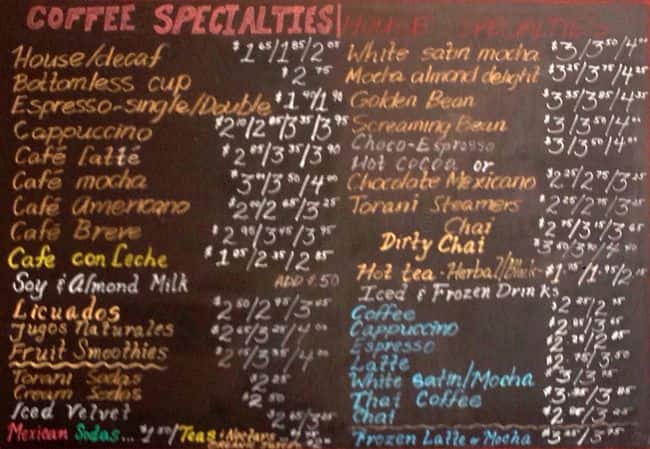 COFFEE SPECIALTIES
House/decaf $1⁶⁵/1⁸⁵/2⁰⁵
Bottomless cup $2.⁷⁵
Espresso-single/Double $1⁴⁰/1⁹⁰
Cappuccino
Café Latté $2⁸⁵/3³⁵/3⁹⁰
Café mocha $3⁰⁰/3⁵⁰/4⁰⁰
Café Americano $2⁰⁰/2⁶⁵/3²⁵
Café Breve $2⁹⁰/3⁴⁵/3⁹⁵
Cafe con Leche $1⁸⁵/2³⁵/2⁸⁵
Soy & Almond Milk ADD $.50
Licuados $2⁵⁰/2⁹⁵/3⁶⁵
Jugos Naturales
Fruit Smoothies $2⁷⁵/3³⁵/4⁰⁰
Torani Sodas $2²⁵
Cream Sodas $2⁵⁰
Iced Velvet $2⁶⁵/3²⁵
Mexican Sodas... $1⁵⁰/Teas & Nectars
HOUSE SPECIALTIES
White satin mocha $3/3⁵⁰/4⁰⁰
Mocha almond delight $3²⁵/3⁷⁵/4²⁵
Golden Bean $3³⁵/3⁸⁵/4³⁵
Screaming Bean $3/3⁵⁰/4⁰⁰
Choco-Espresso $3/3⁵⁰/4⁰⁰
Hot cocoa or
Chocolate Mexicano $2²⁵/2⁷⁵/3²⁵
Torani Steamers $2²⁵/2⁷⁵/3²⁵
Chai $2⁷⁵/3¹⁵/3⁶⁵
Dirty Chai
Hot tea - Herbal/Black-
Iced & Frozen Drinks
Coffee
Cappuccino
Espresso
Latte
White Satin/Mocha
Thai Coffee
Chai
Frozen Latte or Mocha $3²⁵/3⁷⁵